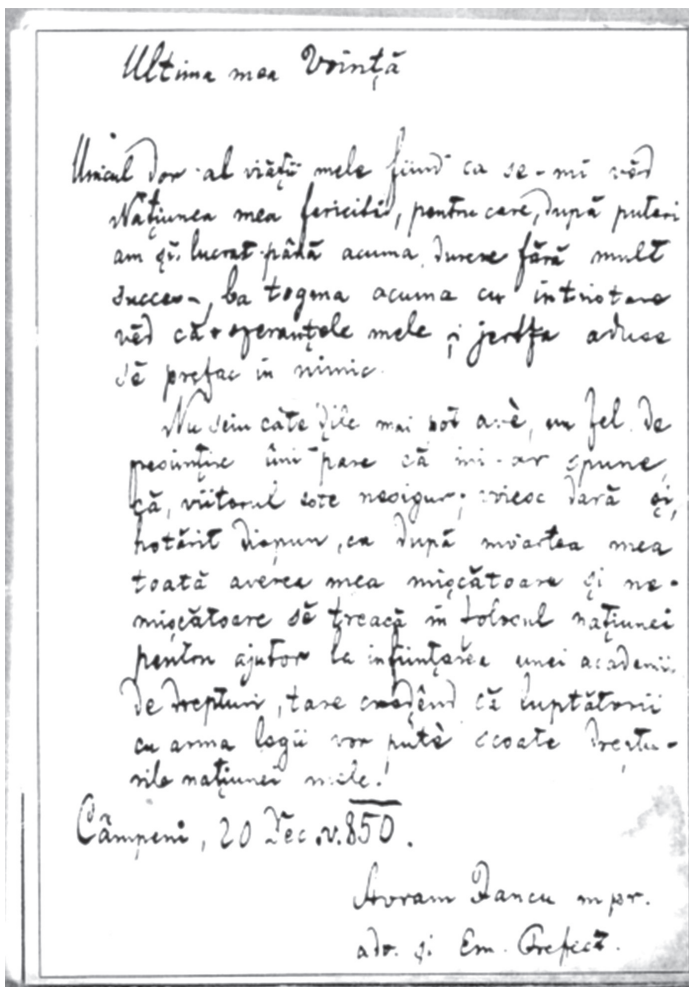 Ultima mea Voință
Unicul dor al viății mele fiind ca se-mi vĕd
Națiunea mea fericită, pentru care, după puteri
am și lucrat până acuma, durere fără mult
succes, ba togma acuma cu întristare
vĕd că speranțele mele și jertfa aduse
sĕ prefac în nimic.
Nu sciu câte dile mai pot avè, un fel de
presimțire îmi pare că mi-ar spune,
că, viitorul este nesigur; voiesc dară și,
hotărît dispun, ca după moartea mea
toată averea mea mișcătoare și ne-
mișcătoare sĕ treacă în folosul națiunei
pentru ajutor la înființarea unei academii
de drepturi, tare credênd că luptătorii
cu arma legii vor putè scoate dreptu-
rile națiunei mele!
Câmpeni, 20 Dec. v. 850.
Avram Iancu mpr.
adv. și Em. Prefect.